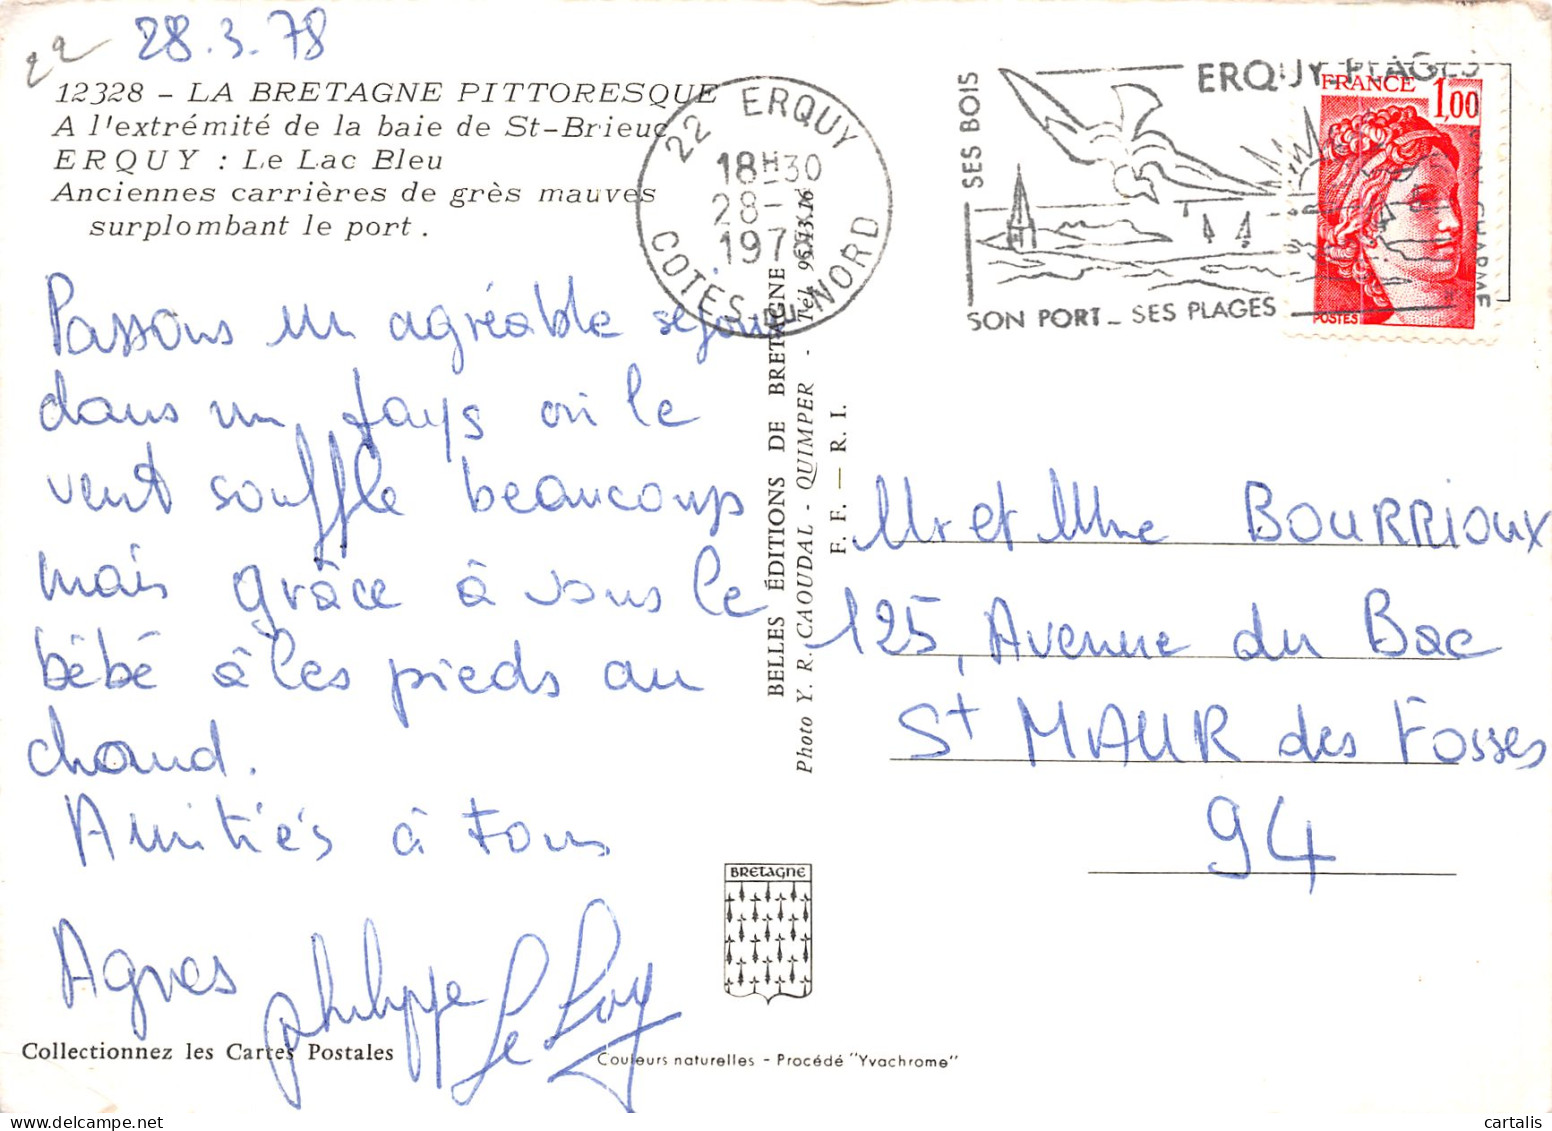 22
28.3.78
12328 - LA BRETAGNE PITTORESQUE
A l'extrémité de la baie de St-Brieuc
ERQUY : Le Lac Bleu
Anciennes carrières de grès mauves
surplombant le port.
Passons un agréable séjour
dans un pays où le
vent souffle beaucoup
mais grâce à vous le
bébé a les pieds au
chaud.
Amitiés à tous
Agnes Philippe Le Roy
Collectionnez les Cartes Postales
22 ERQUY
18H30
28-
197
COTES DU NORD
BELLES ÉDITIONS DE BRETAGNE
Photo Y. R. CAOUDAL - QUIMPER - Tél. 95.13.16
F. F. — R. I.
BRETAGNE
Couleurs naturelles - Procédé "Yvachrome"
ERQUY-PLAGES
SES BOIS
SON PORT_ SES PLAGES
CHARME
FRANCE 1,00
POSTES
Mr et Mme BOURRIOUX
125, Avenue du Bac
St MAUR des Fosses
94
cartalis